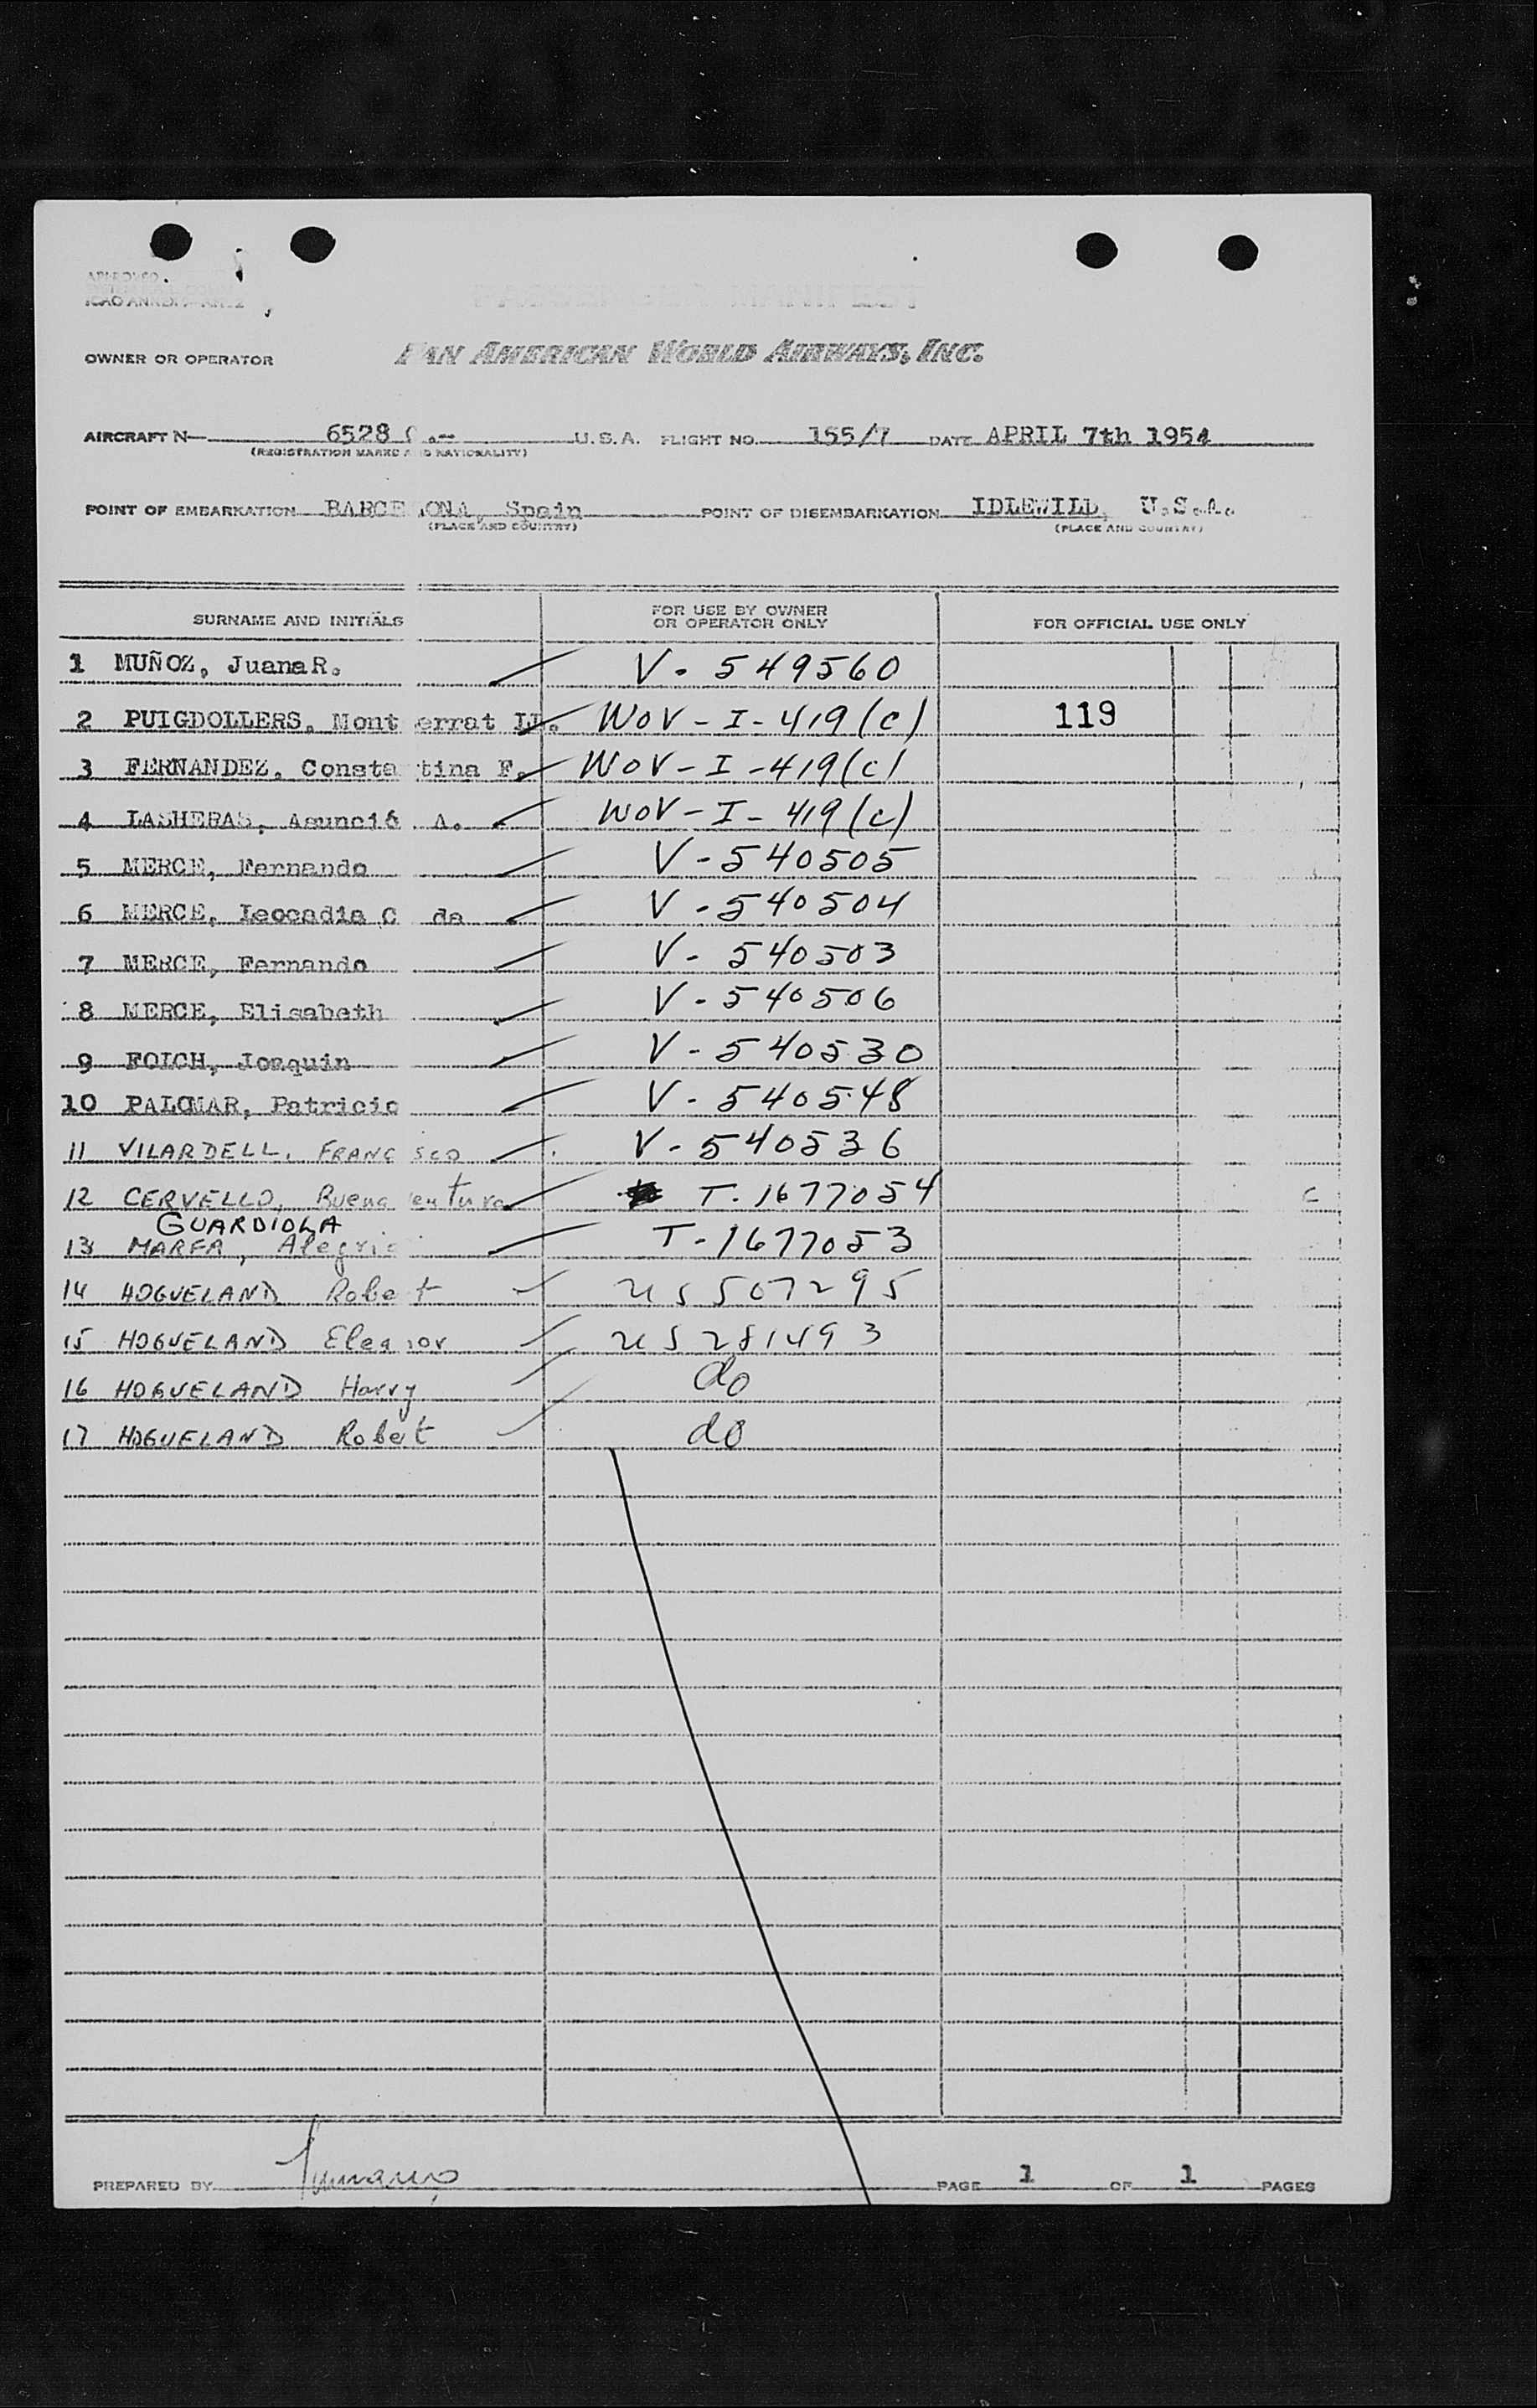 APPROVED
ICAO ANNEX 9
OWNER OR OPERATOR PAN AMERICAN WORLD AIRWAYS, INC.
AIRCRAFT N— 6528 C.- U.S.A. FLIGHT NO. 155/7 DATE APRIL 7th 1954
(REGISTRATION MARKS AND NATIONALITY)
POINT OF EMBARKATION BARCELONA, Spain POINT OF DISEMBARKATION IDLEWILD, U.S.A.
(PLACE AND COUNTRY) (PLACE AND COUNTRY)
SURNAME AND INITIALS FOR USE BY OWNER OR OPERATOR ONLY FOR OFFICIAL USE ONLY
1 MUÑOZ, Juana R. V. 549560
2 PUIGDOLLERS, Montserrat LL. WOV-I-419(c) 119
3 FERNANDEZ, Constantina F. WOV-I-419(c)
4 LASHERAS, Asunció A. WOV-I-419(c)
5 MERCE, Fernando V-540505
6 MERCE, Leocadia C da V-540504
7 MERCE, Fernando V-540503
8 MERCE, Elisabeth V-540506
9 FOLCH, Joaquin V-540530
10 PALOMAR, Patricio V-540548
11 VILARDELL, FRANCISCO V-540536
12 CERVELLO, Buenaventura T-1677054
GUARDIOLA
13 MARFA, Alegria T-1677053
14 HOGUELAND Robert US 507295
15 HOGUELAND Eleanor US 281493
16 HOGUELAND Harry do
17 HOGUELAND Robert do
PREPARED BY PAGE 1 OF 1 PAGES